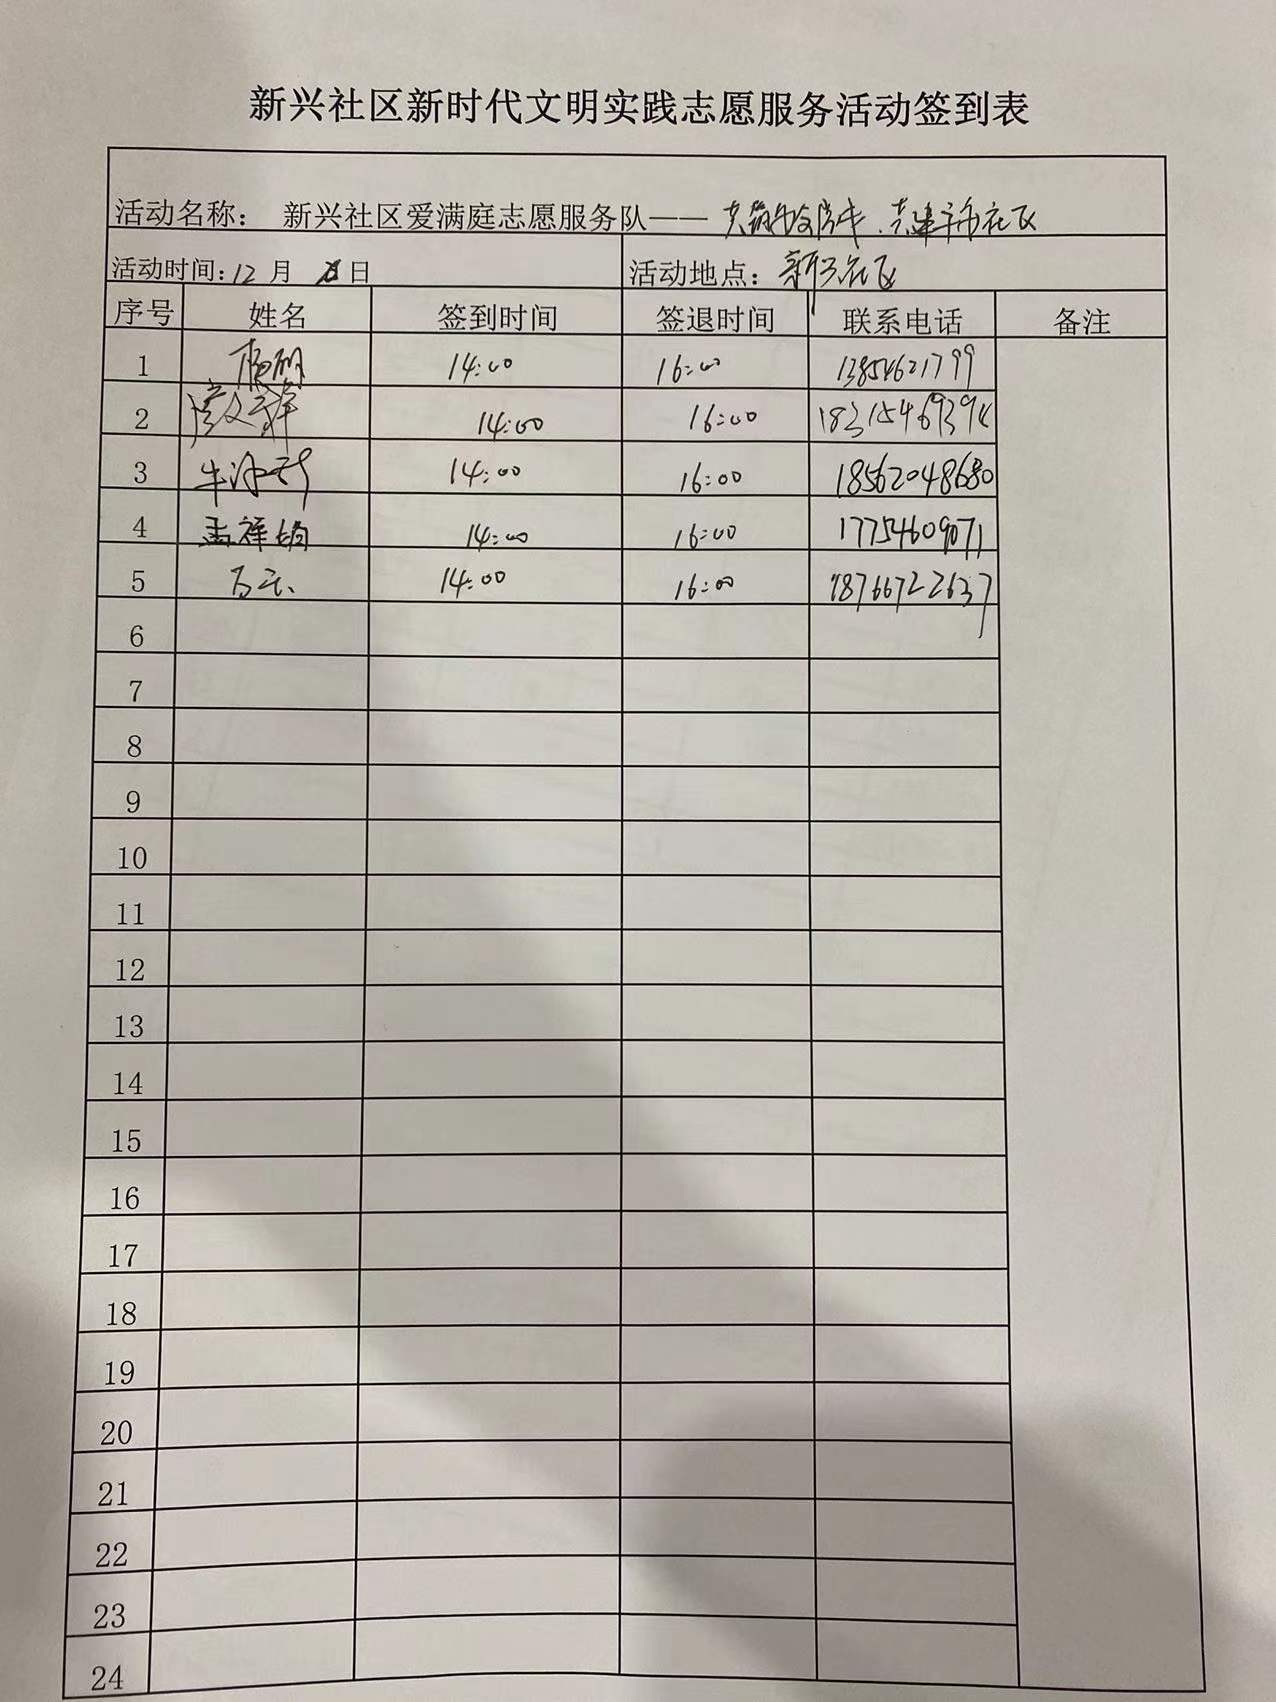 新兴社区新时代文明实践志愿服务活动签到表
活动名称： 新兴社区爱满庭志愿服务队——
活动时间：12月 日 活动地点：新兴社区
序号 姓名 签到时间 签退时间 联系电话 备注
1 14:00 16:00 13854621799
2 14:00 16:00 18315469394
3 14:00 16:00 18562048680
4 孟祥娟 14:00 16:00 17754609071
5 14:00 16:00 18766722637
6
7
8
9
10
11
12
13
14
15
16
17
18
19
20
21
22
23
24